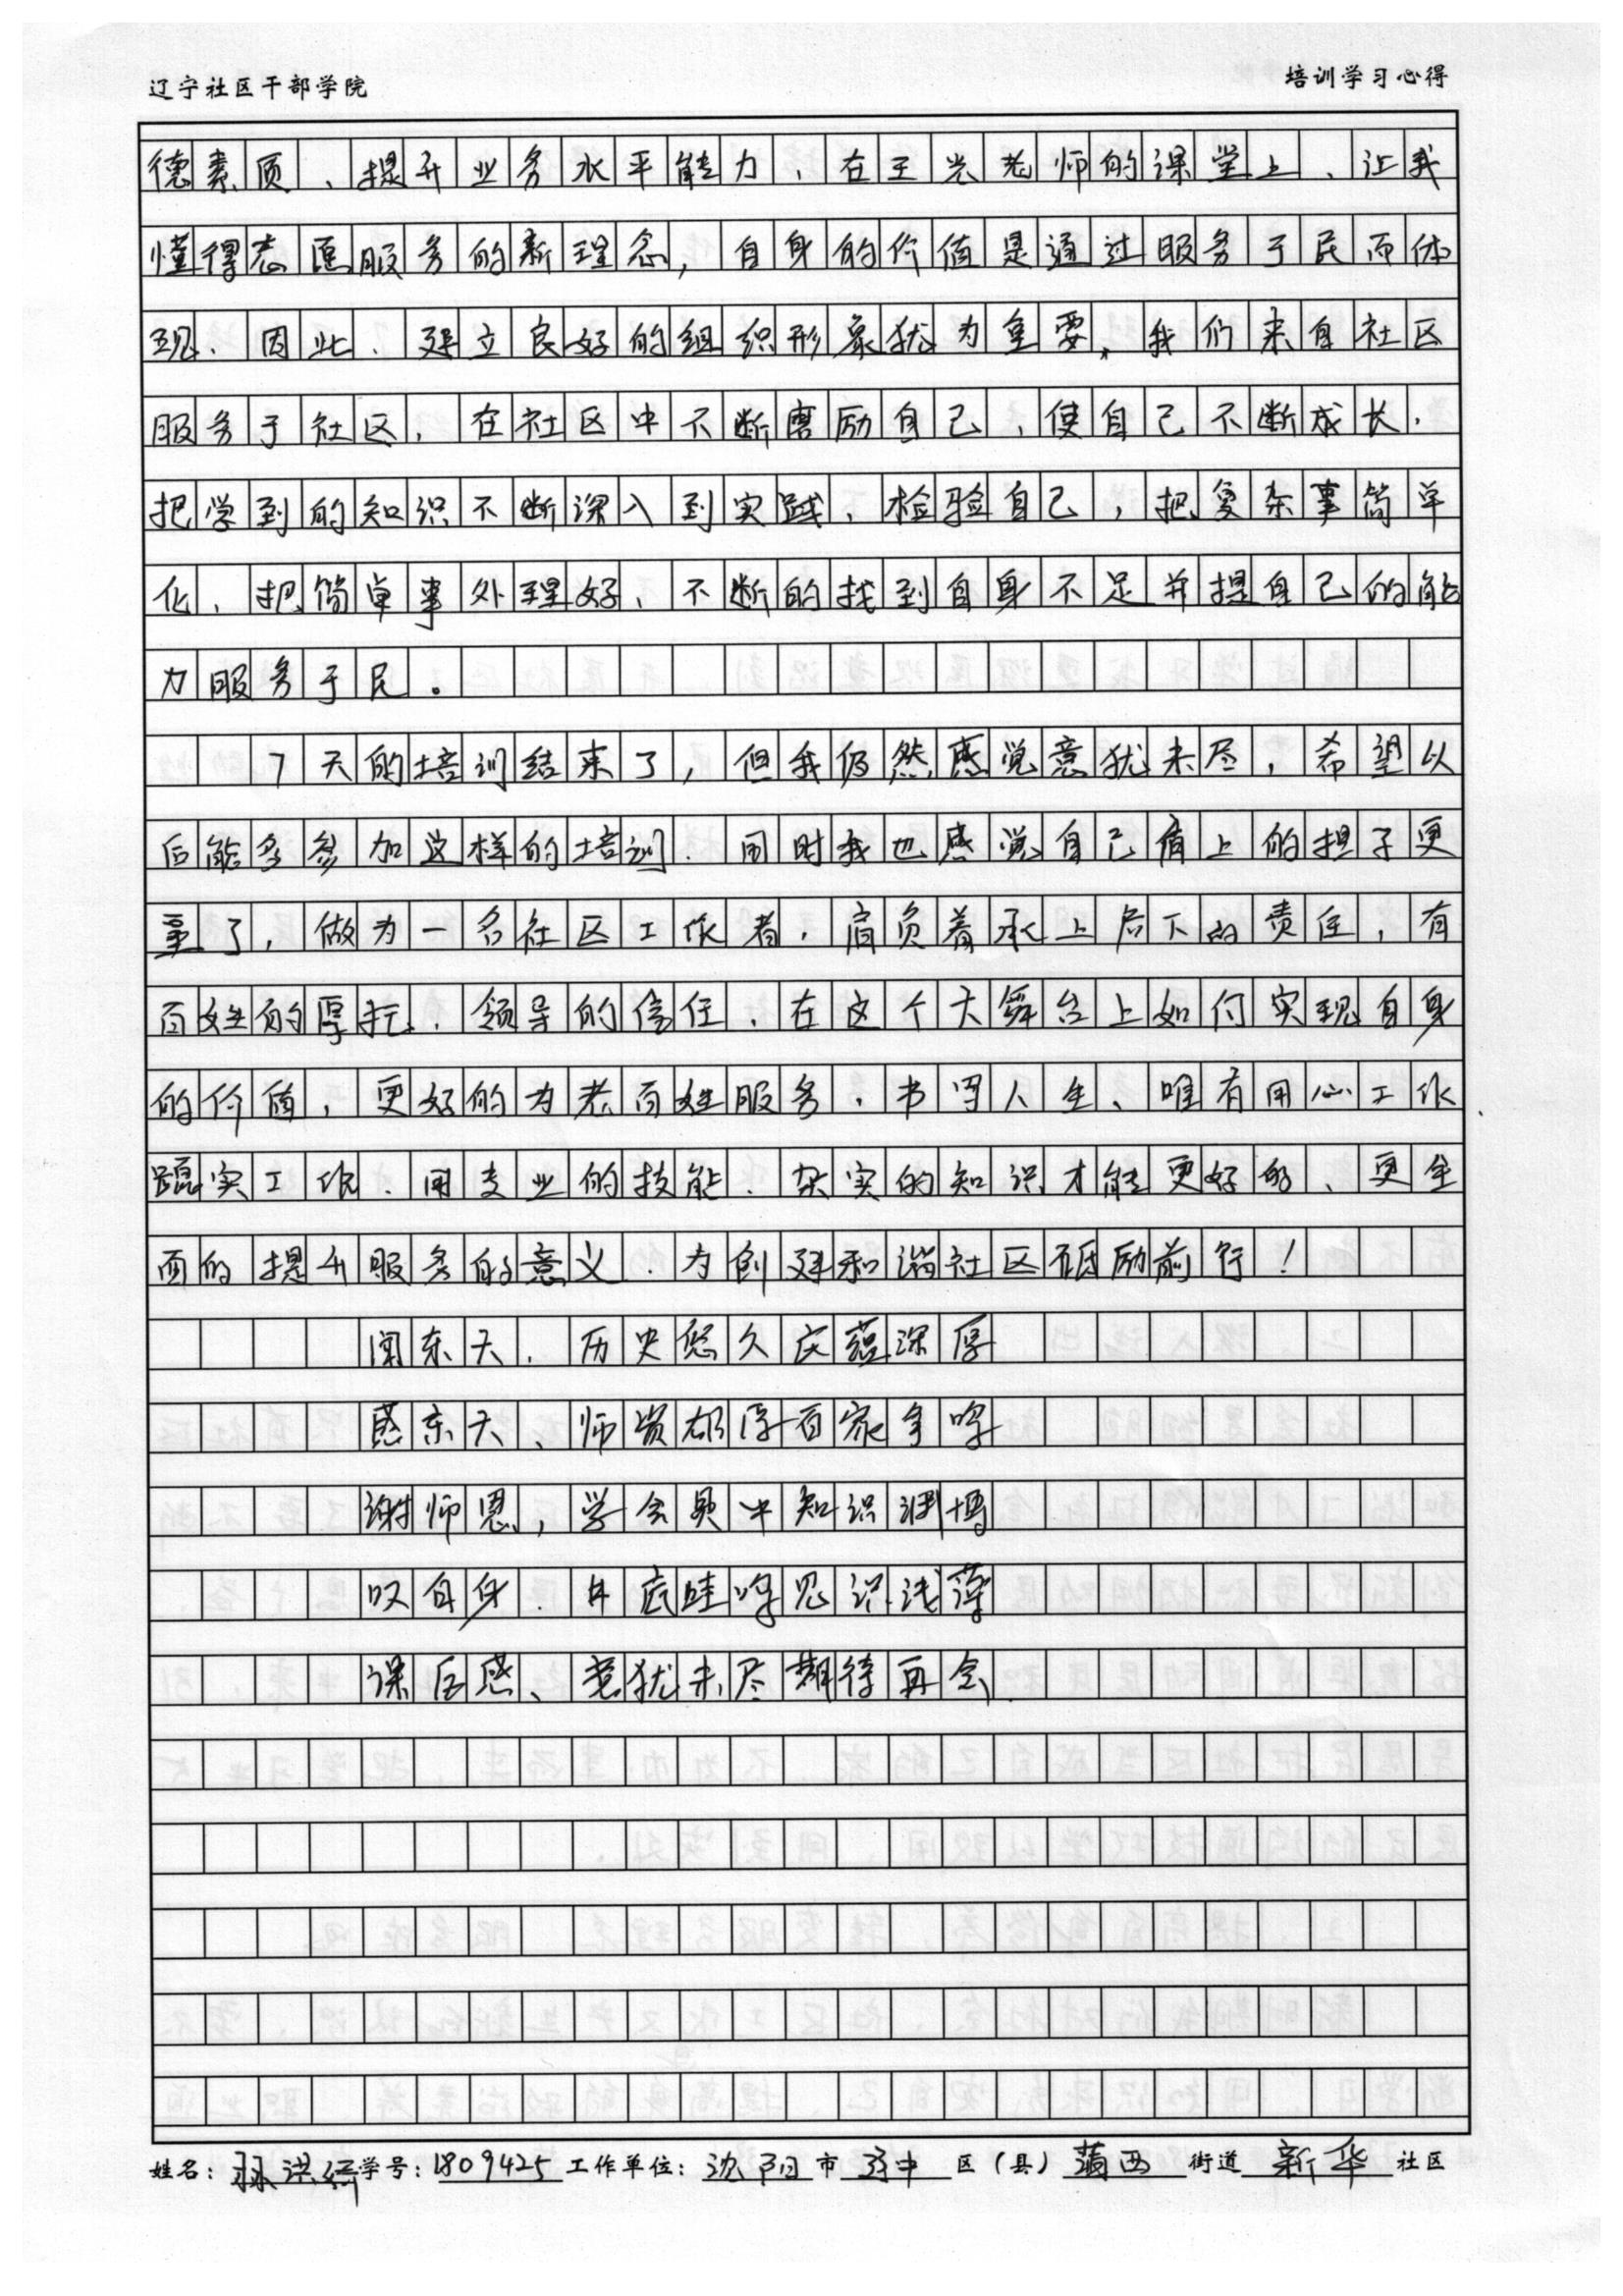 辽宁社区干部学院
培训学习心得
德素质、提升业务水平能力，在王光老师的课堂上、让我
懂得志愿服务的新理念，自身的价值是通过服务于民而体
现、因此、建立良好的组织形象犹为重要，我们来自社区
服务于社区，在社区中不断磨励自己，使自己不断成长，
把学到的知识不断深入到实践、检验自己，把复杂事简单
化，把简单事处理好、不断的找到自身不足并提自己的能
力服务于民。
7天的培训结束了，但我仍然感觉意犹未尽，希望以
后能多参加这样的培训．同时我也感觉自己肩上的担子更
重了，做为一名社区工作者，肩负着承上启下的责任，有
百姓的厚托、领导的信任，在这个大舞台上如何实现自身
的价值，更好的为老百姓服务，书写人生、唯有用心工作、
踏实工作．用专业的技能．扎实的知识才能更好的、更全
面的提升服务的意义．为创建和谐社区砥励前行！
闻东大，历史悠久底蕴深厚
感东大、师资雄厚百家争鸣
谢师恩，学会其中知识渊博
叹自身．井底蛙鸣见识浅薄
课后感、意犹未尽期待再会
姓名：学号：1809425 工作单位：沈阳市辽中区（县）蒲西街道新华社区